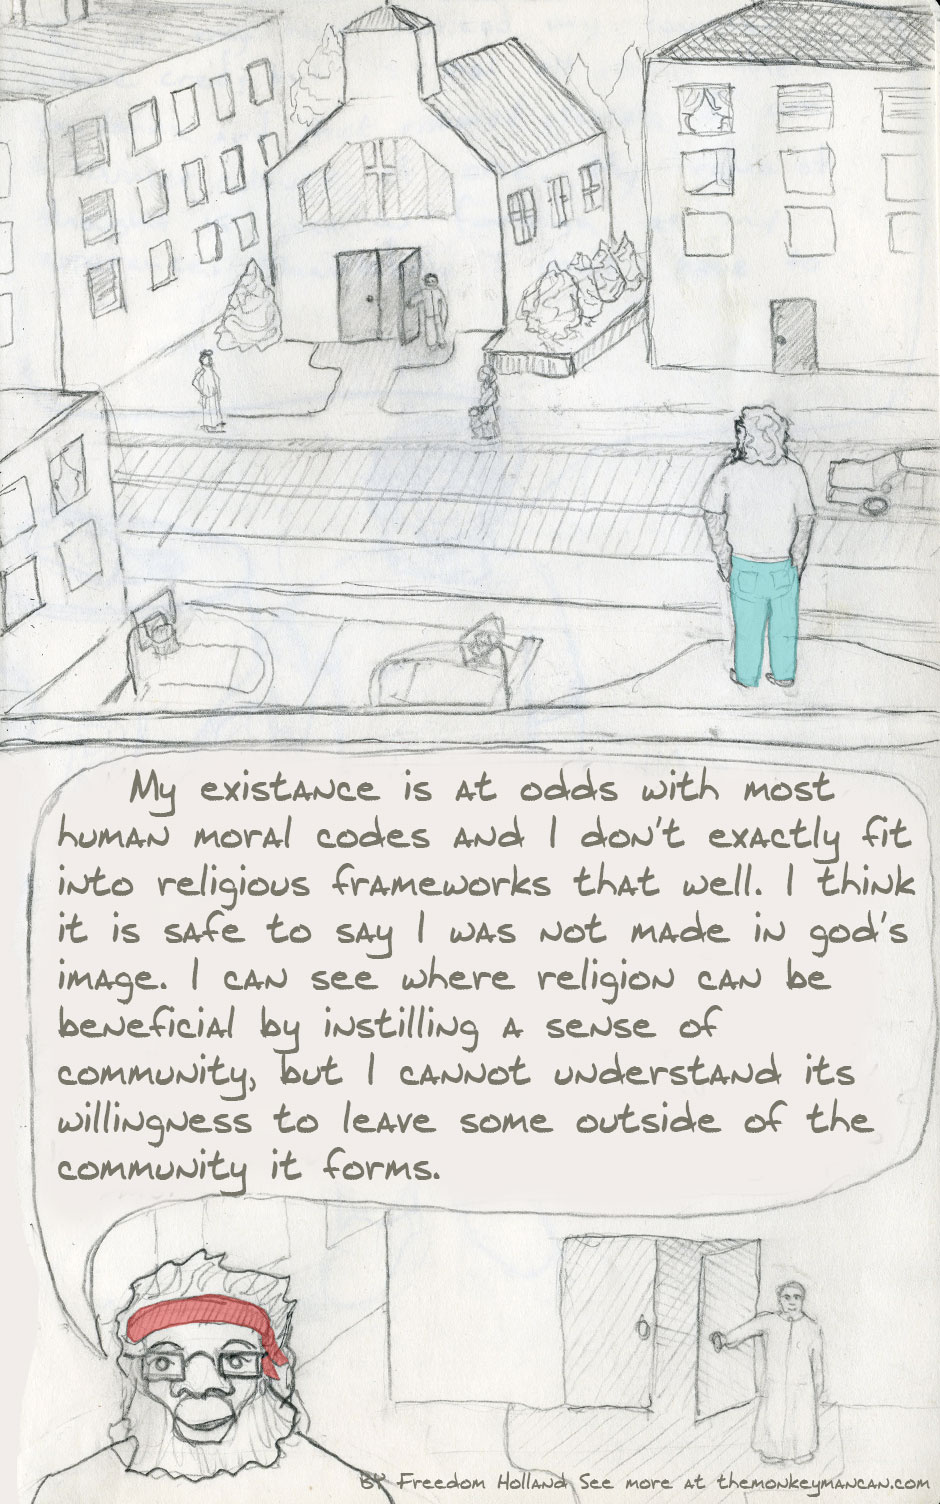 My existance is at odds with most
human moral codes and I don't exactly fit
into religious frameworks that well. I think
it is safe to say I was not made in god's
image. I can see where religion can be
beneficial by instilling a sense of
community, but I cannot understand its
willingness to leave some outside of the
community it forms.
BY Freedom Holland See more at themonkeymancan.com